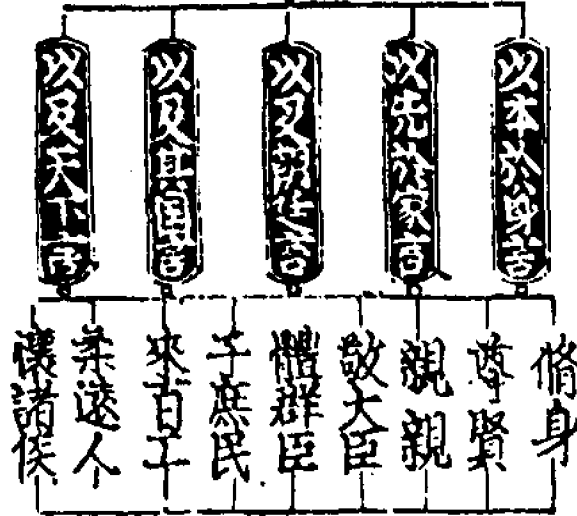 以本於身言
以先於家言
以及朝廷言
以及其国言
以及天下言
脩身
尊賢
親親
敬大臣
體群臣
子庶民
來百工
柔遠人
懷諸侯